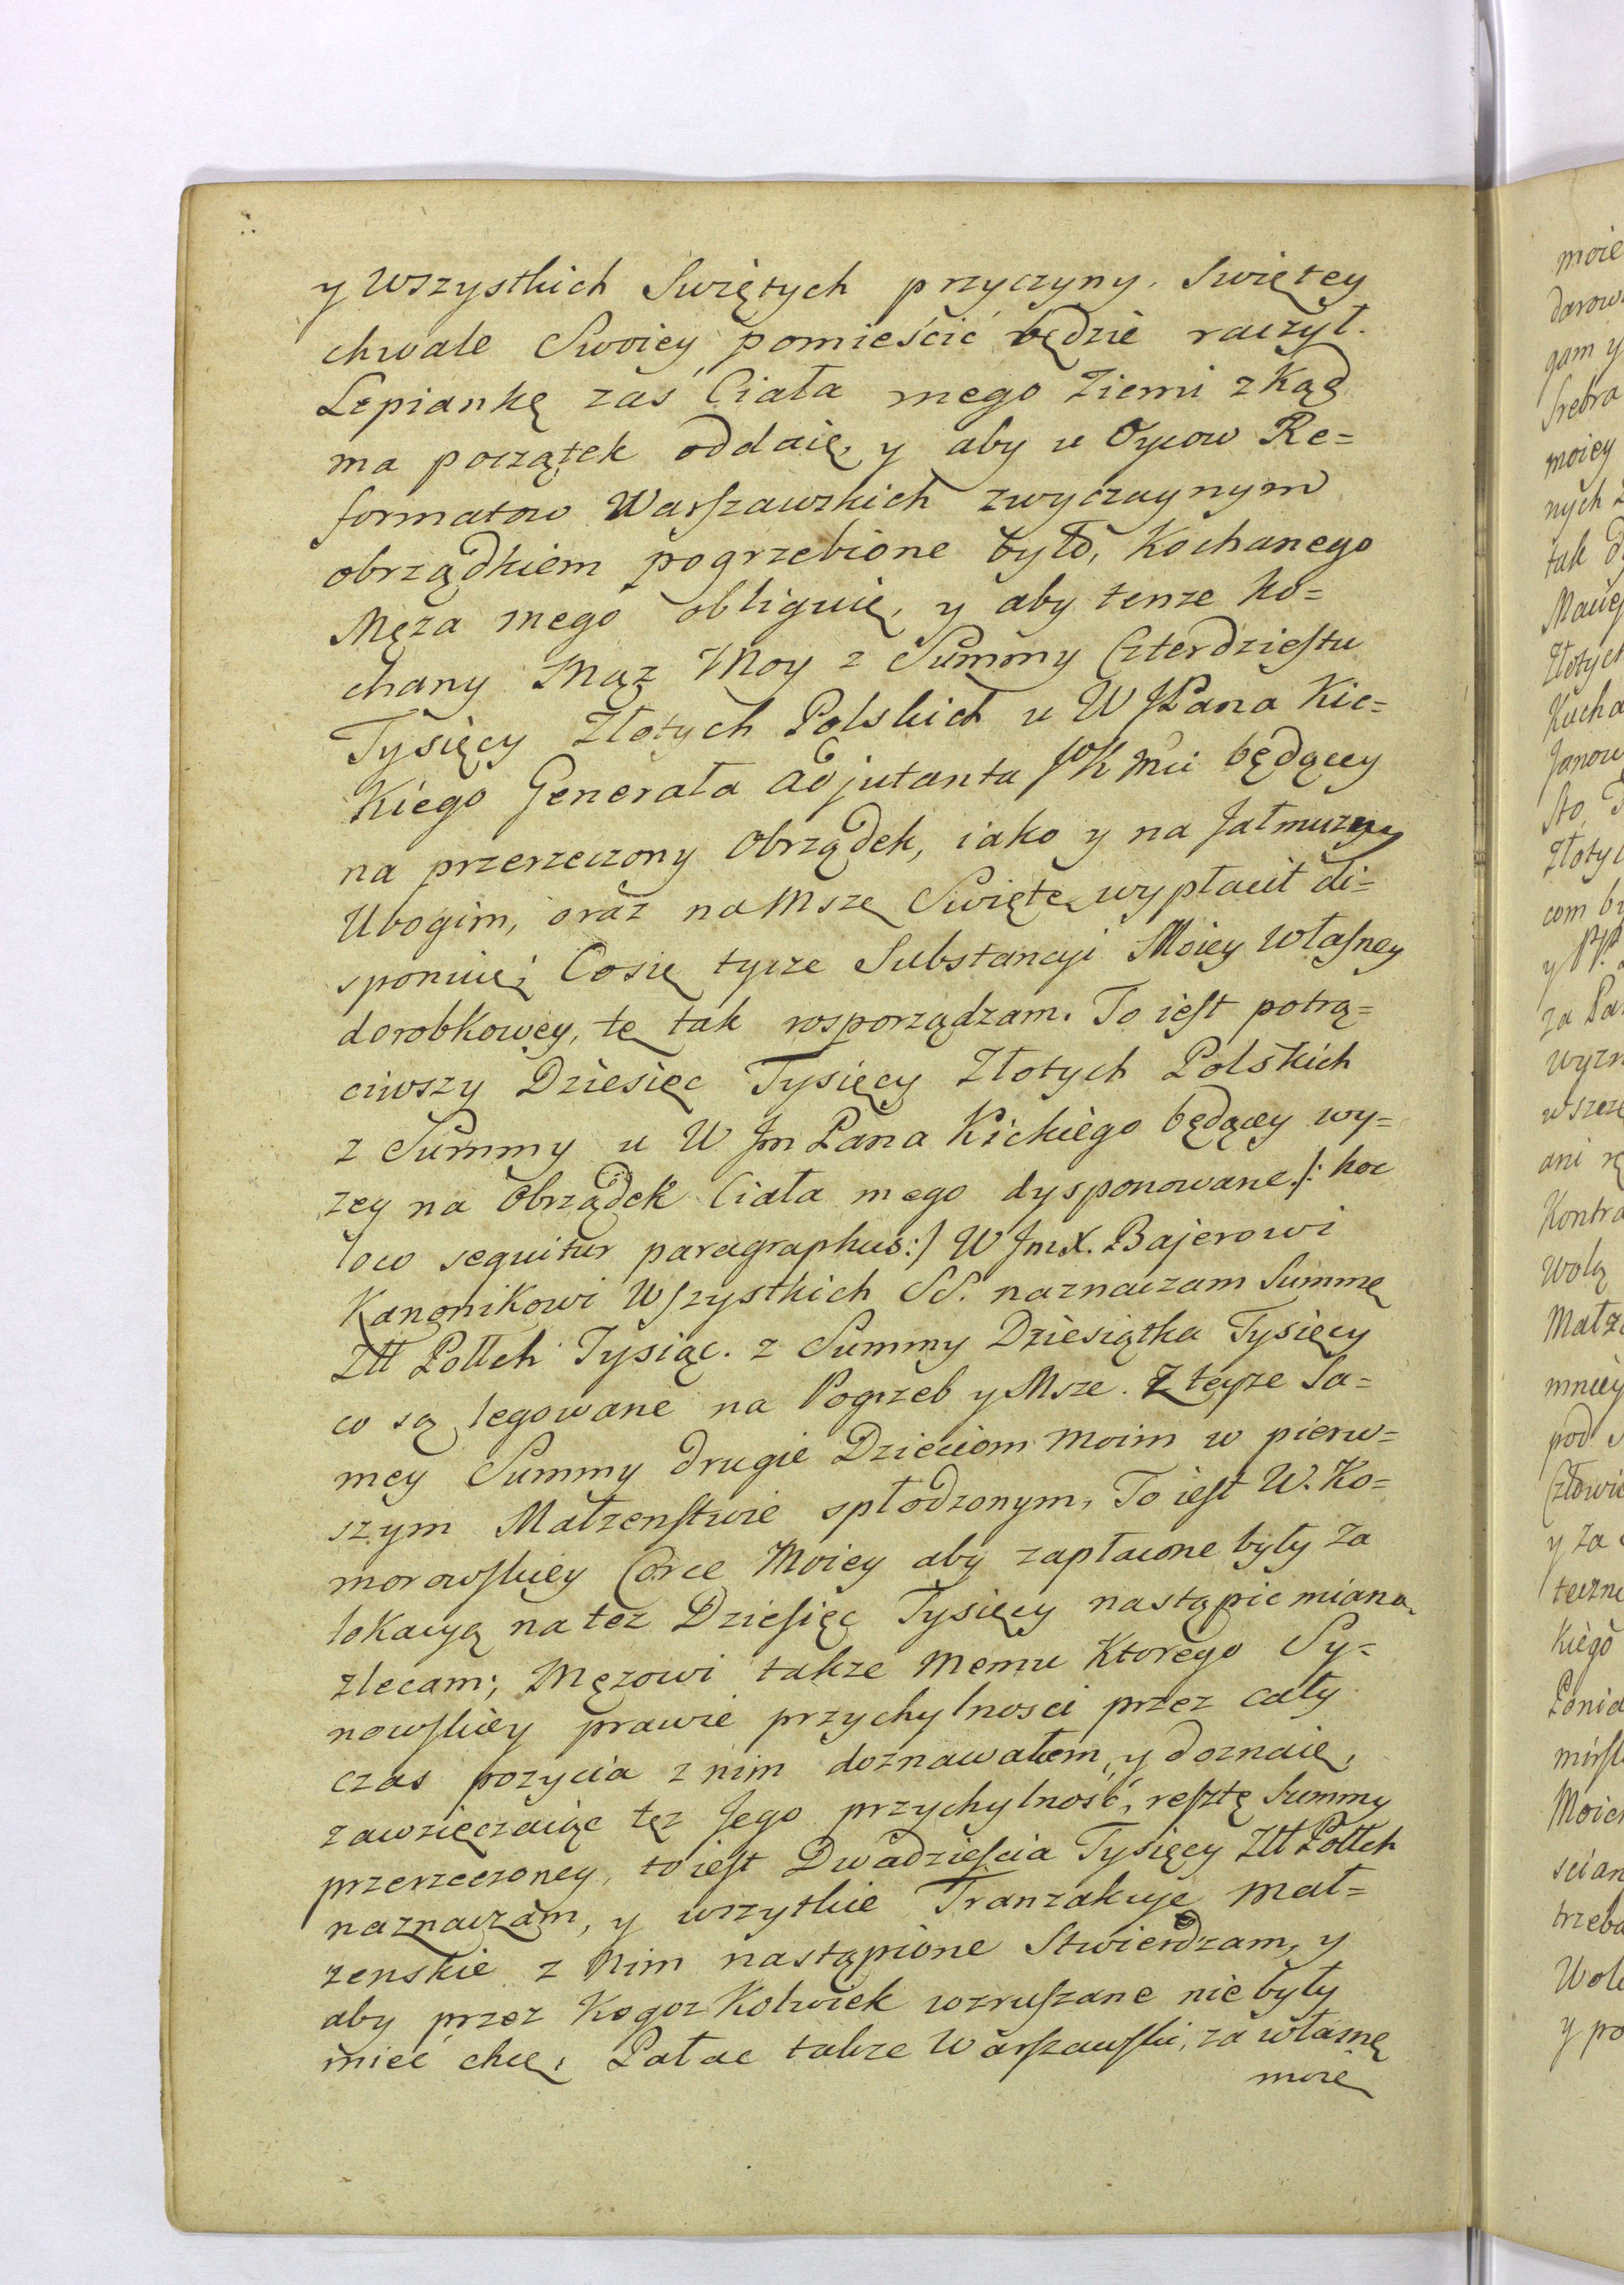 y Wszystkich Swiętych przyczyny. Swiętey
chwale Swoiey pomieścić będzie raczył.
Lepiankę zaś Ciała mego Ziemi zkąd
ma początek oddaię, y aby u Oycow Re=
formatow Warszawskich zwyczaynym
obrządkiem pogrzebione było, Kochanego
Męża mego obliguię, y aby tenze Ko=
chany Mąz Moy z Summy Czterdziestu
Tysięcy Złotych Polskich u W JPana Kic=
Kiego Generała Adjutanta JKMci będącey
na przerzeczony Obrządek, iako y na Jałmuzny
Ubogim, oraz na Msze Swięte wypłacił di=
sponuię; Cosię tycze Substancyi Moiey Własney
dorobkowey, tę tak rosporządzam. To iest potrą=
ciwszy Dziesięc Tysięcy Złotych Polskich
z Summy u W Jm Pana Kickiego będącey wy=
zey na Obrządek Ciała mego dysponowane /: hoc
loco sequitur paragraphus :/ W JmX. Bajerowi
Kanonikowi Wszystkich SS. naznaczam Summę
Złł Polłch Tysiąc. z Summy Dziesiątka Tysięcy
co są legowane na Pogrzeb y Msze. Z teyze Sa=
mey Summy drugie Dzieciom moim w pierw=
szym Małzenstwie spłodzonym, To iest W. Ko=
morowskiey Corce Moiey aby zapłacone były za
lokacyą na tez Dziesięc Tysięcy nastąpic mianą
zlecam; Męzowi takze memu Ktorego Sy=
nowskiey prawie przychylnosci przez cały
czas pozycia z nim doznawałem, y doznaię,
zawzięczaiąc tęz Jego przychylność, resztę Summy
przerzeczoney, to iest Dwadziescia Tysięcy Złł Polłch
naznaczam, y wszytkie Tranzakcye Mał=
zenskie z Nim nastąpione Stwierdzam, y
aby przez KogozKolwiek wzruszane nie były
mieć chcę, Pałac takze Warszawski, za własne
moie

moie
gam y
Srebra
moiey
nych
tak
Złotych
Kocha
Janow
Sto,
com
y
za Pa
ani
Kontra
Wolą
mniey
pod
y za
kiego
trzeba
y po